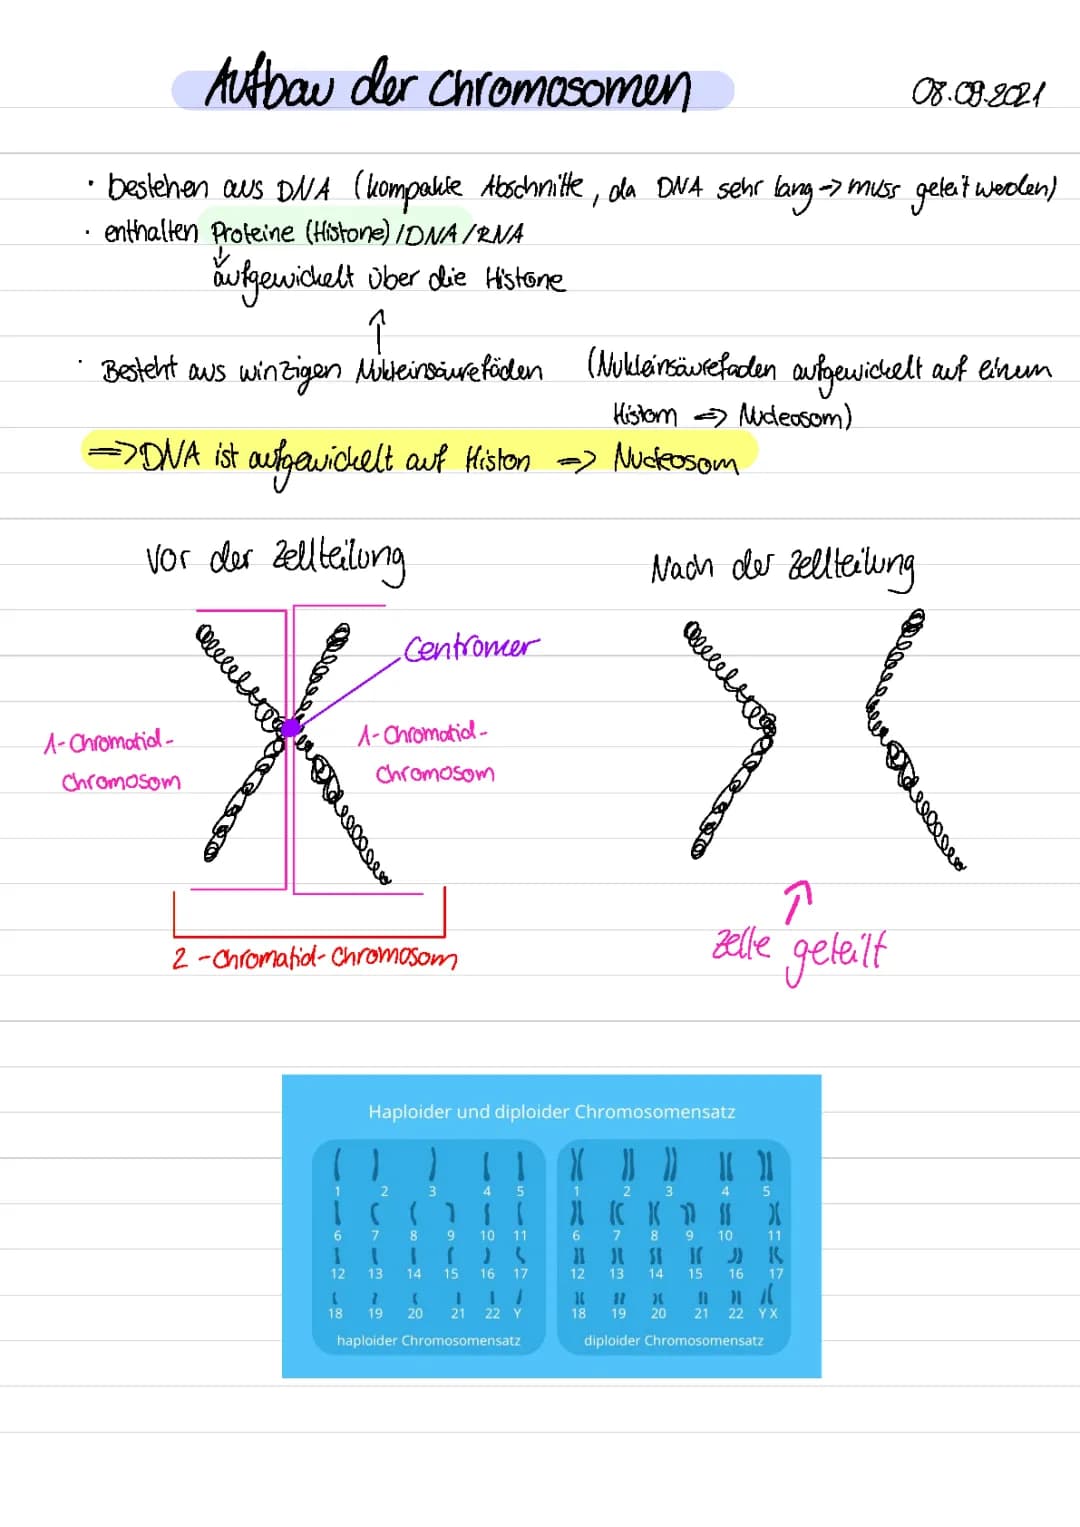 Aufbau der Chromosomen
08.09.2021
· bestehen aus DNA (kompakte Abschnitte, da DNA sehr lang -> muss geteilt werden)
· enthalten Proteine (Histone)/DNA/RNA
↓
aufgewickelt über die Histone
↑
· Besteht aus winzigen Nukleinsäurefäden (Nukleinsäurefaden aufgewickelt auf einem
Histom => Nucleosom)
=> DNA ist aufgewickelt auf Histon => Nucleosom
Vor der Zellteilung
Nach der Zellteilung
Centromer
1-Chromatid-
Chromosom
1-Chromatid-
Chromosom
2-Chromatid-Chromosom
Zelle geteilt
Haploider und diploider Chromosomensatz
1 2 3 4 5
6 7 8 9 10 11
12 13 14 15 16 17
18 19 20 21 22 Y
haploider Chromosomensatz
1 2 3 4 5
6 7 8 9 10 11
12 13 14 15 16 17
18 19 20 21 22 Y X
diploider Chromosomensatz